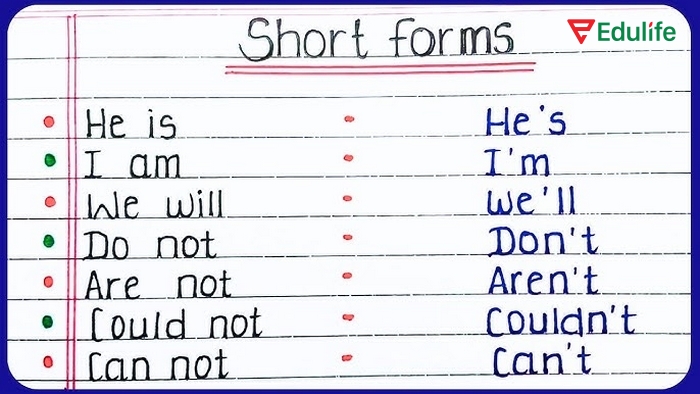 Short forms
Edulife
He is - He's
I am - I'm
We will - We'll
Do not - Don't
Are not - Aren't
Could not - Couldn't
Can not - Can't